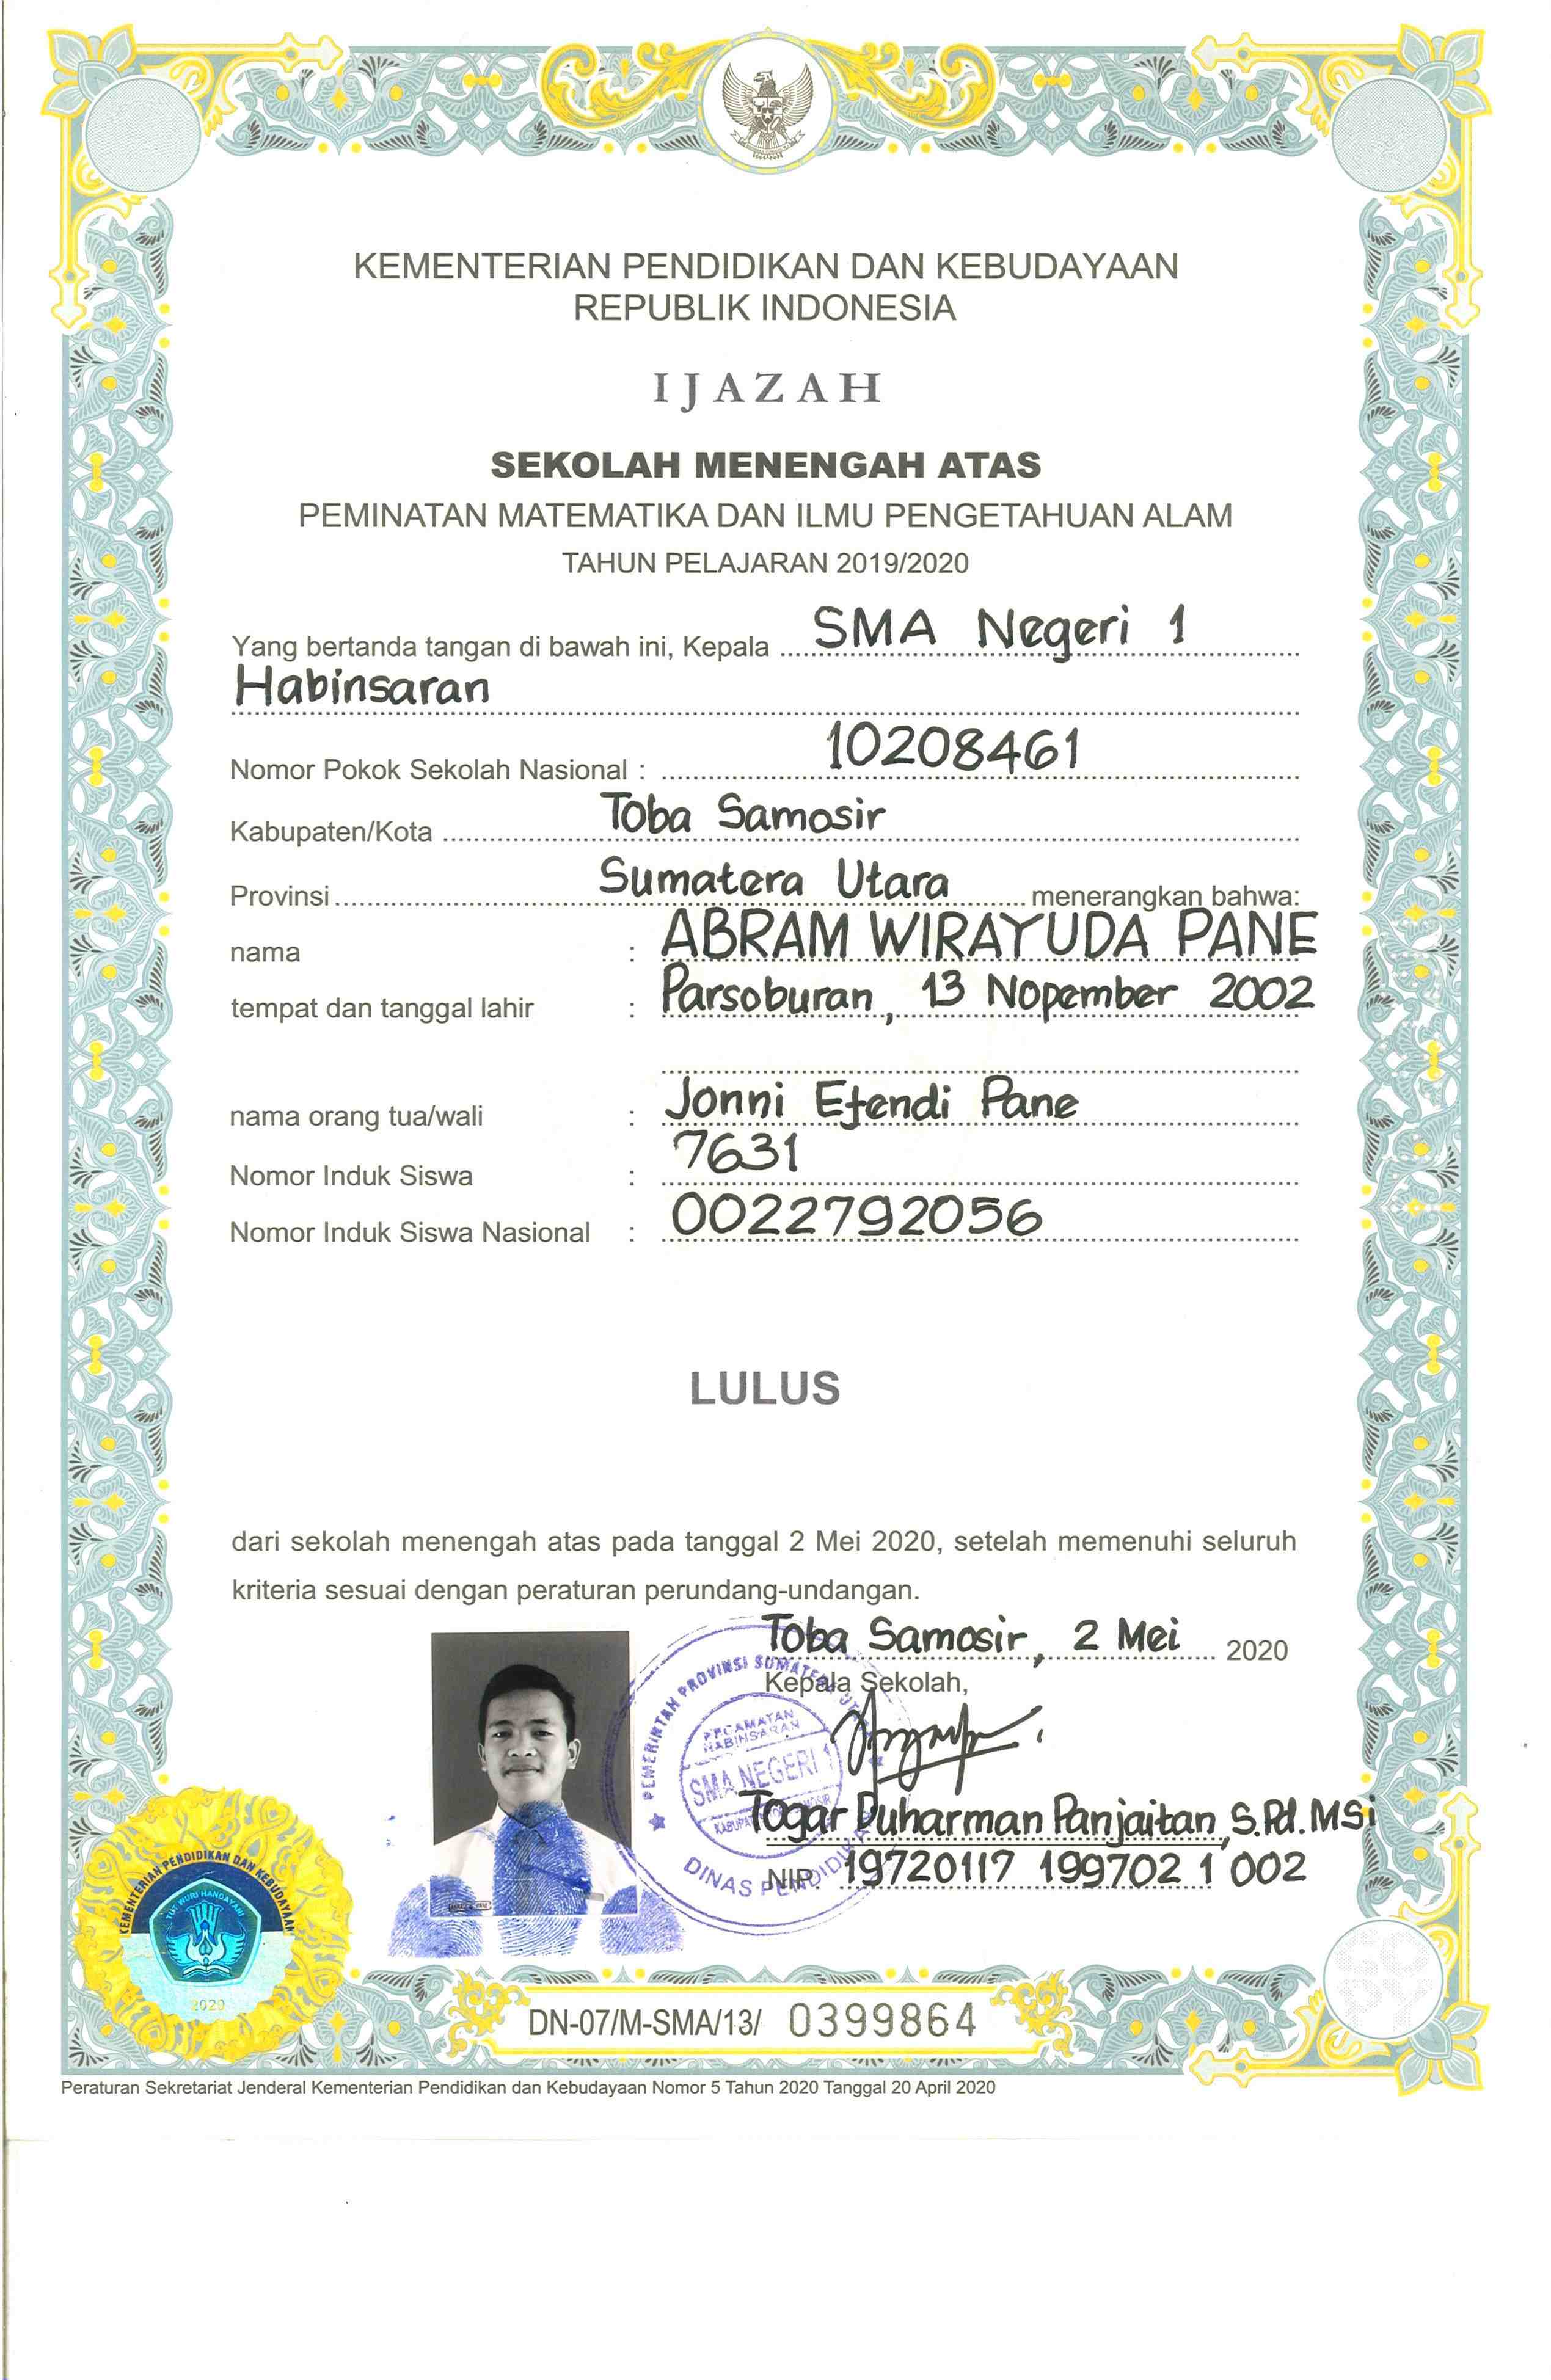 KEMENTERIAN PENDIDIKAN DAN KEBUDAYAAN
REPUBLIK INDONESIA
IJAZAH
SEKOLAH MENENGAH ATAS
PEMINATAN MATEMATIKA DAN ILMU PENGETAHUAN ALAM
TAHUN PELAJARAN 2019/2020
Yang bertanda tangan di bawah ini, Kepala SMA Negeri 1
Habinsaran
Nomor Pokok Sekolah Nasional : 10208461
Kabupaten/Kota Toba Samosir
Provinsi Sumatera Utara menerangkan bahwa:
nama : ABRAM WIRAYUDA PANE
tempat dan tanggal lahir : Parsoburan, 13 Nopember 2002
nama orang tua/wali : Jonni Efendi Pane
Nomor Induk Siswa : 7631
Nomor Induk Siswa Nasional : 0022792056
LULUS
dari sekolah menengah atas pada tanggal 2 Mei 2020, setelah memenuhi seluruh
kriteria sesuai dengan peraturan perundang-undangan.
Toba Samosir, 2 Mei 2020
Kepala Sekolah,
PEMERINTAH PROVINSI SUMATERA UTARA
KECAMATAN
HABINSARAN
SMA NEGERI 1
DINAS PENDIDIKAN
Togar Duharman Panjaitan, S.Pd. MSi
NIP. 19720117 199702 1 002
KEMENTERIAN PENDIDIKAN DAN KEBUDAYAAN
TUT WURI HANDAYANI
2020
DN-07/M-SMA/13/ 0399864
COPY
Peraturan Sekretariat Jenderal Kementerian Pendidikan dan Kebudayaan Nomor 5 Tahun 2020 Tanggal 20 April 2020